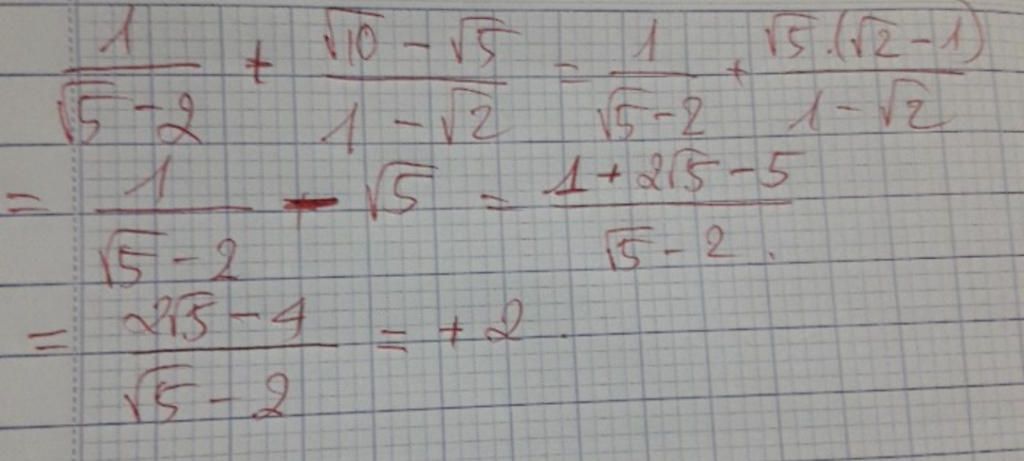 1/(√5 - 2) + (√10 - √5)/(1 - √2) = 1/(√5 - 2) + (√5 . (√2 - 1))/(1 - √2)
= 1/(√5 - 2) - √5 = (1 + 2√5 - 5)/(√5 - 2) .
= (2√5 - 4)/(√5 - 2) = + 2 .